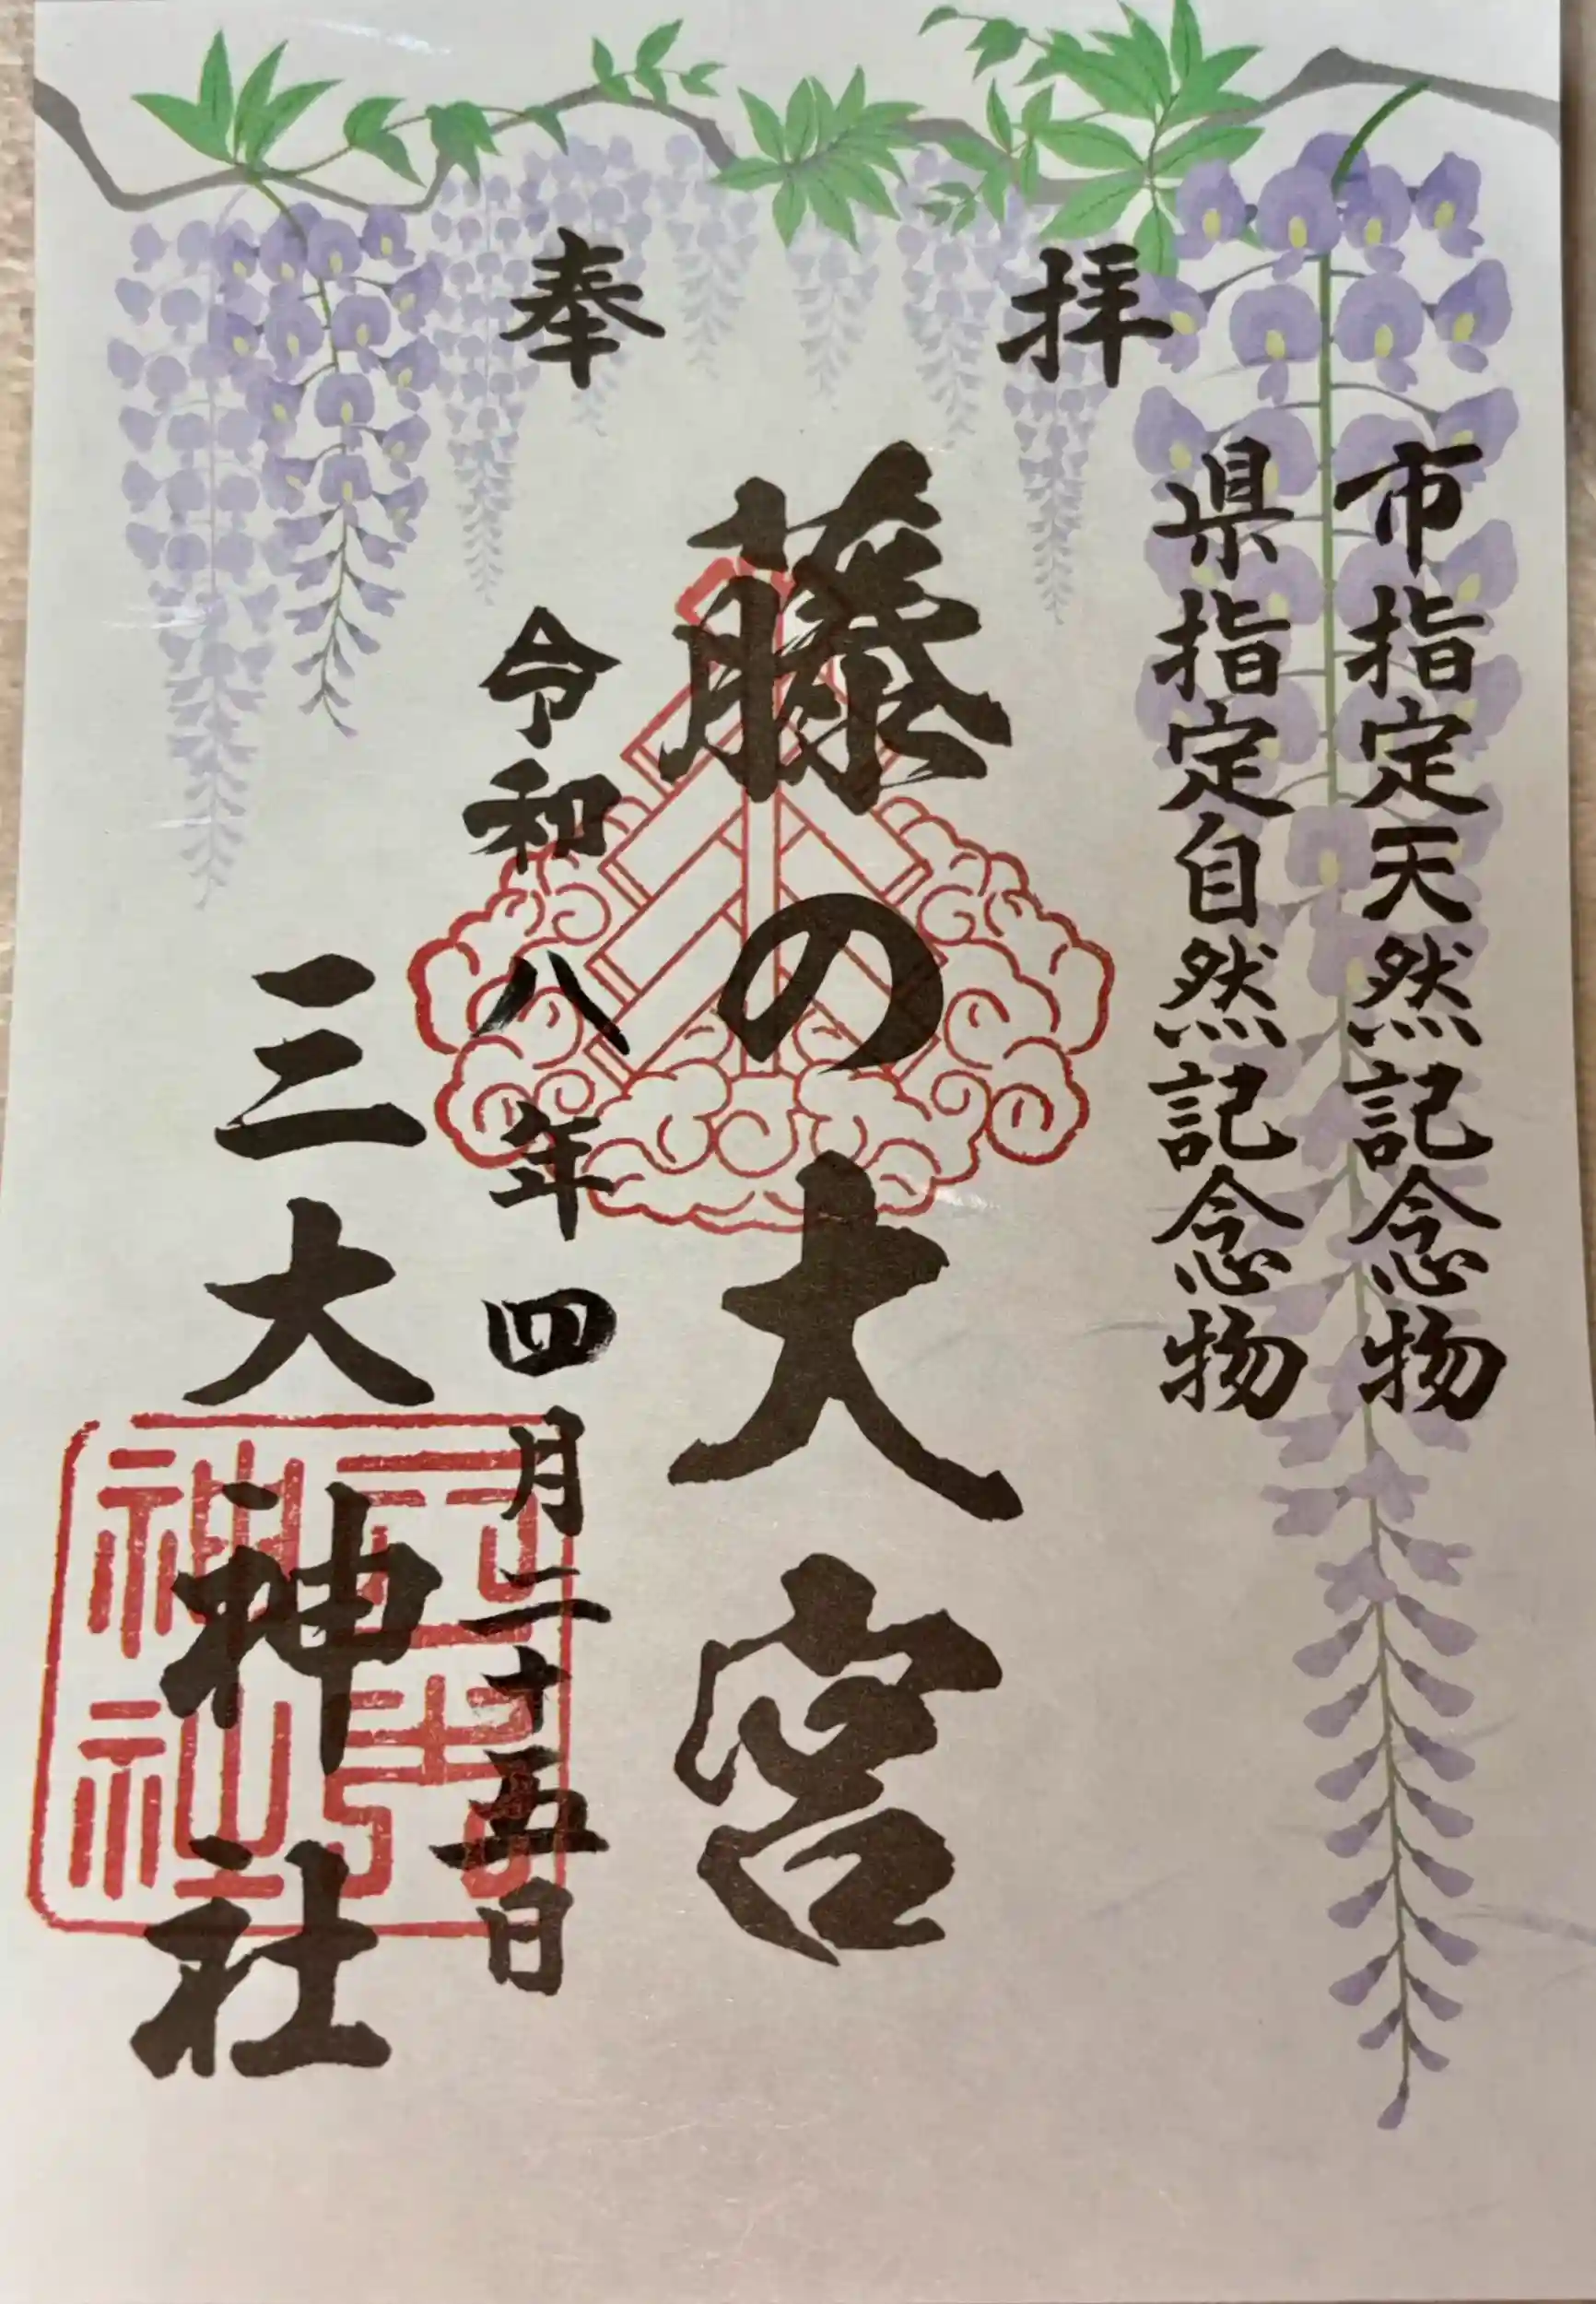 奉拝
市指定天然記念物
県指定自然記念物
藤の大宮
令和八年四月二十五日
三大神社